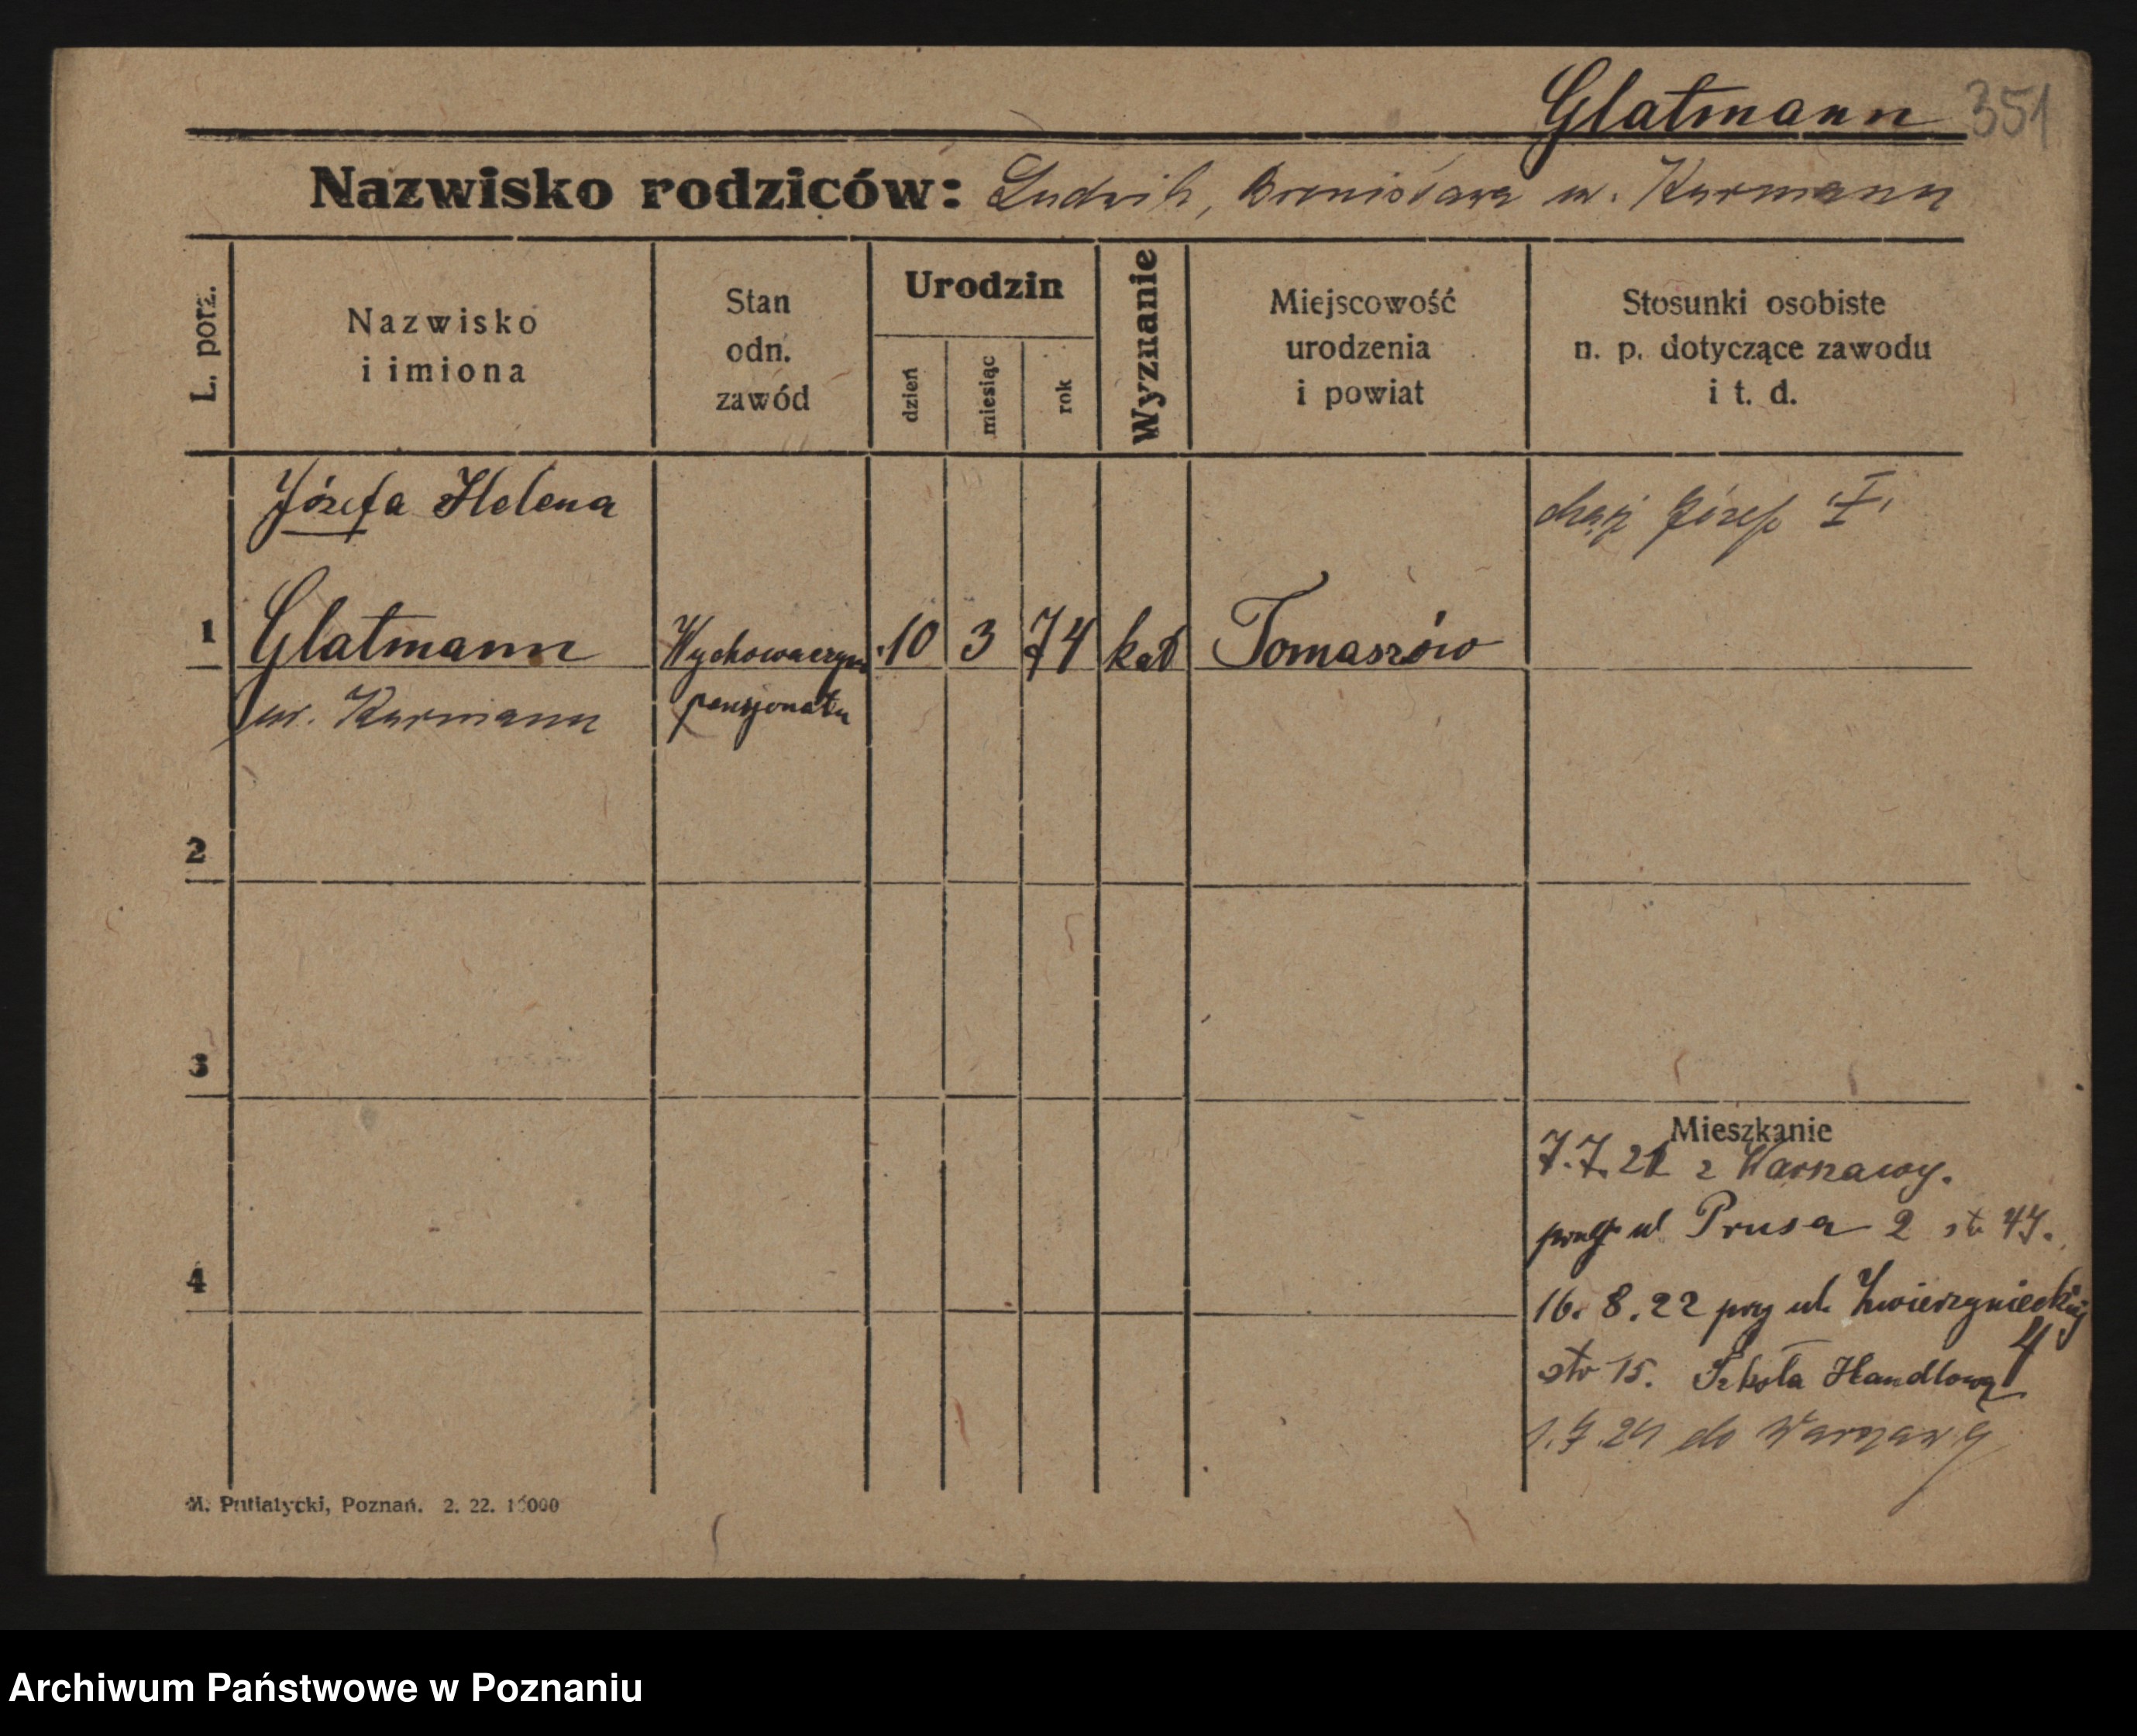 Glatmann 351
Nazwisko rodziców: Ludwik, Bronisława ur. Kurmann
L. porz.
Nazwisko
i imiona
Stan
odn.
zawód
Urodzin
dzień
miesiąc
rok
Wyznanie
Miejscowość
urodzenia
i powiat
Stosunki osobiste
n. p. dotyczące zawodu
i t. d.
Józefa Helena
mąż Józef I
1 Glatmann Wychowaczyni 10 3 74 kat Tomaszów
ur. Kurmann pensjonatu
2
3
Mieszkanie
7.7.21 z Warszawy.
ul Prusa 2 str 47.
4
16. 8. 22 przy ul. Zwierzynieckiej
4
str 15. Szkoła Handlowa
1.7.24 do Warszawy
M. Putiatycki, Poznań. 2. 22. 15000
Archiwum Państwowe w Poznaniu